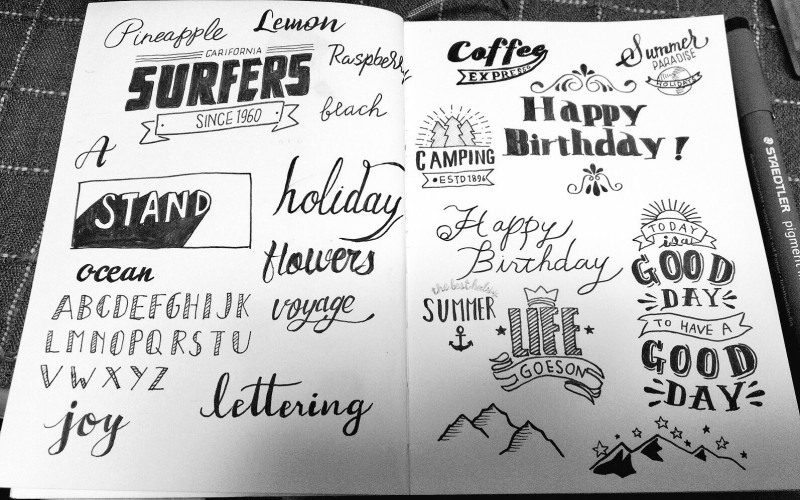 Pineapple
Lemon
CARIFORNIA
SURFERS
SINCE 1960
Raspberry
beach
A
STAND
holiday
ocean
flowers
ABCDEFGHIJK
LMNOPQRSTU
VWXYZ
voyage
joy
lettering
Coffee
EXPRESSO
Summer
PARADISE
HOLIDAYS
Happy
Birthday!
CAMPING
ESTD 1896
Happy
Birthday
the best
SUMMER
LIFE
GOESON
TODAY
is a
GOOD
DAY
TO HAVE A
GOOD
DAY
STAEDTLER
pigment